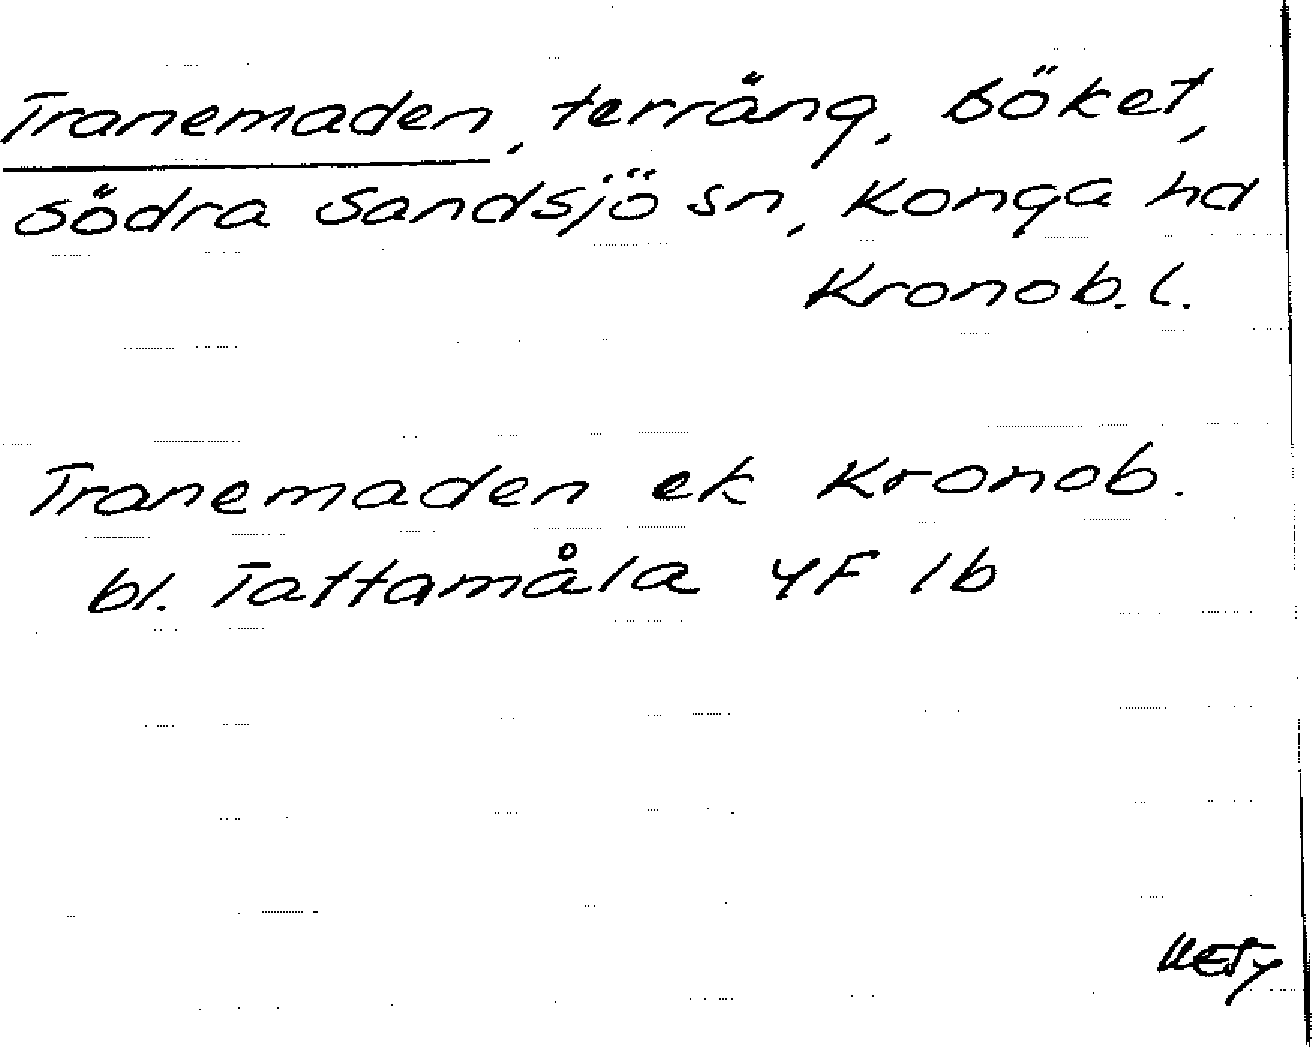 Tranemaden, terräng, Böket,
Södra Sandsjö sn, Konga hd
Kronob. l.
Tranemaden ek Kronob.
bl. Tattamåla 4F 1b